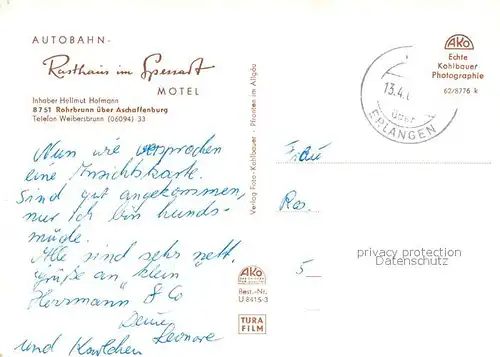 AUTOBAHN-
Rasthaus im Spessart
MOTEL
Inhaber Hellmut Hofmann
8751 Rohrbrunn über Aschaffenburg
Telefon Weibersbrunn (06094) 33
Nun wie versprochen
eine Ansichtskarte.
Sind gut angekommen,
nur Ich bin hunds-
müde.
Alle sind sehr nett.
grüße an "klein
Herrmann" & Co
Deine
Leonore
und Karlchen
Verlag Foto-Kohlbauer · Pfronten im Allgäu
AKO
Best.-Nr.
U 8415-3
TURA
FILM
AKO
Echte
Kohlbauer
Photographie
62/8776 k
13.4.
über
ERLANGEN
Frau
Ros.
5
privacy protection
Datenschutz